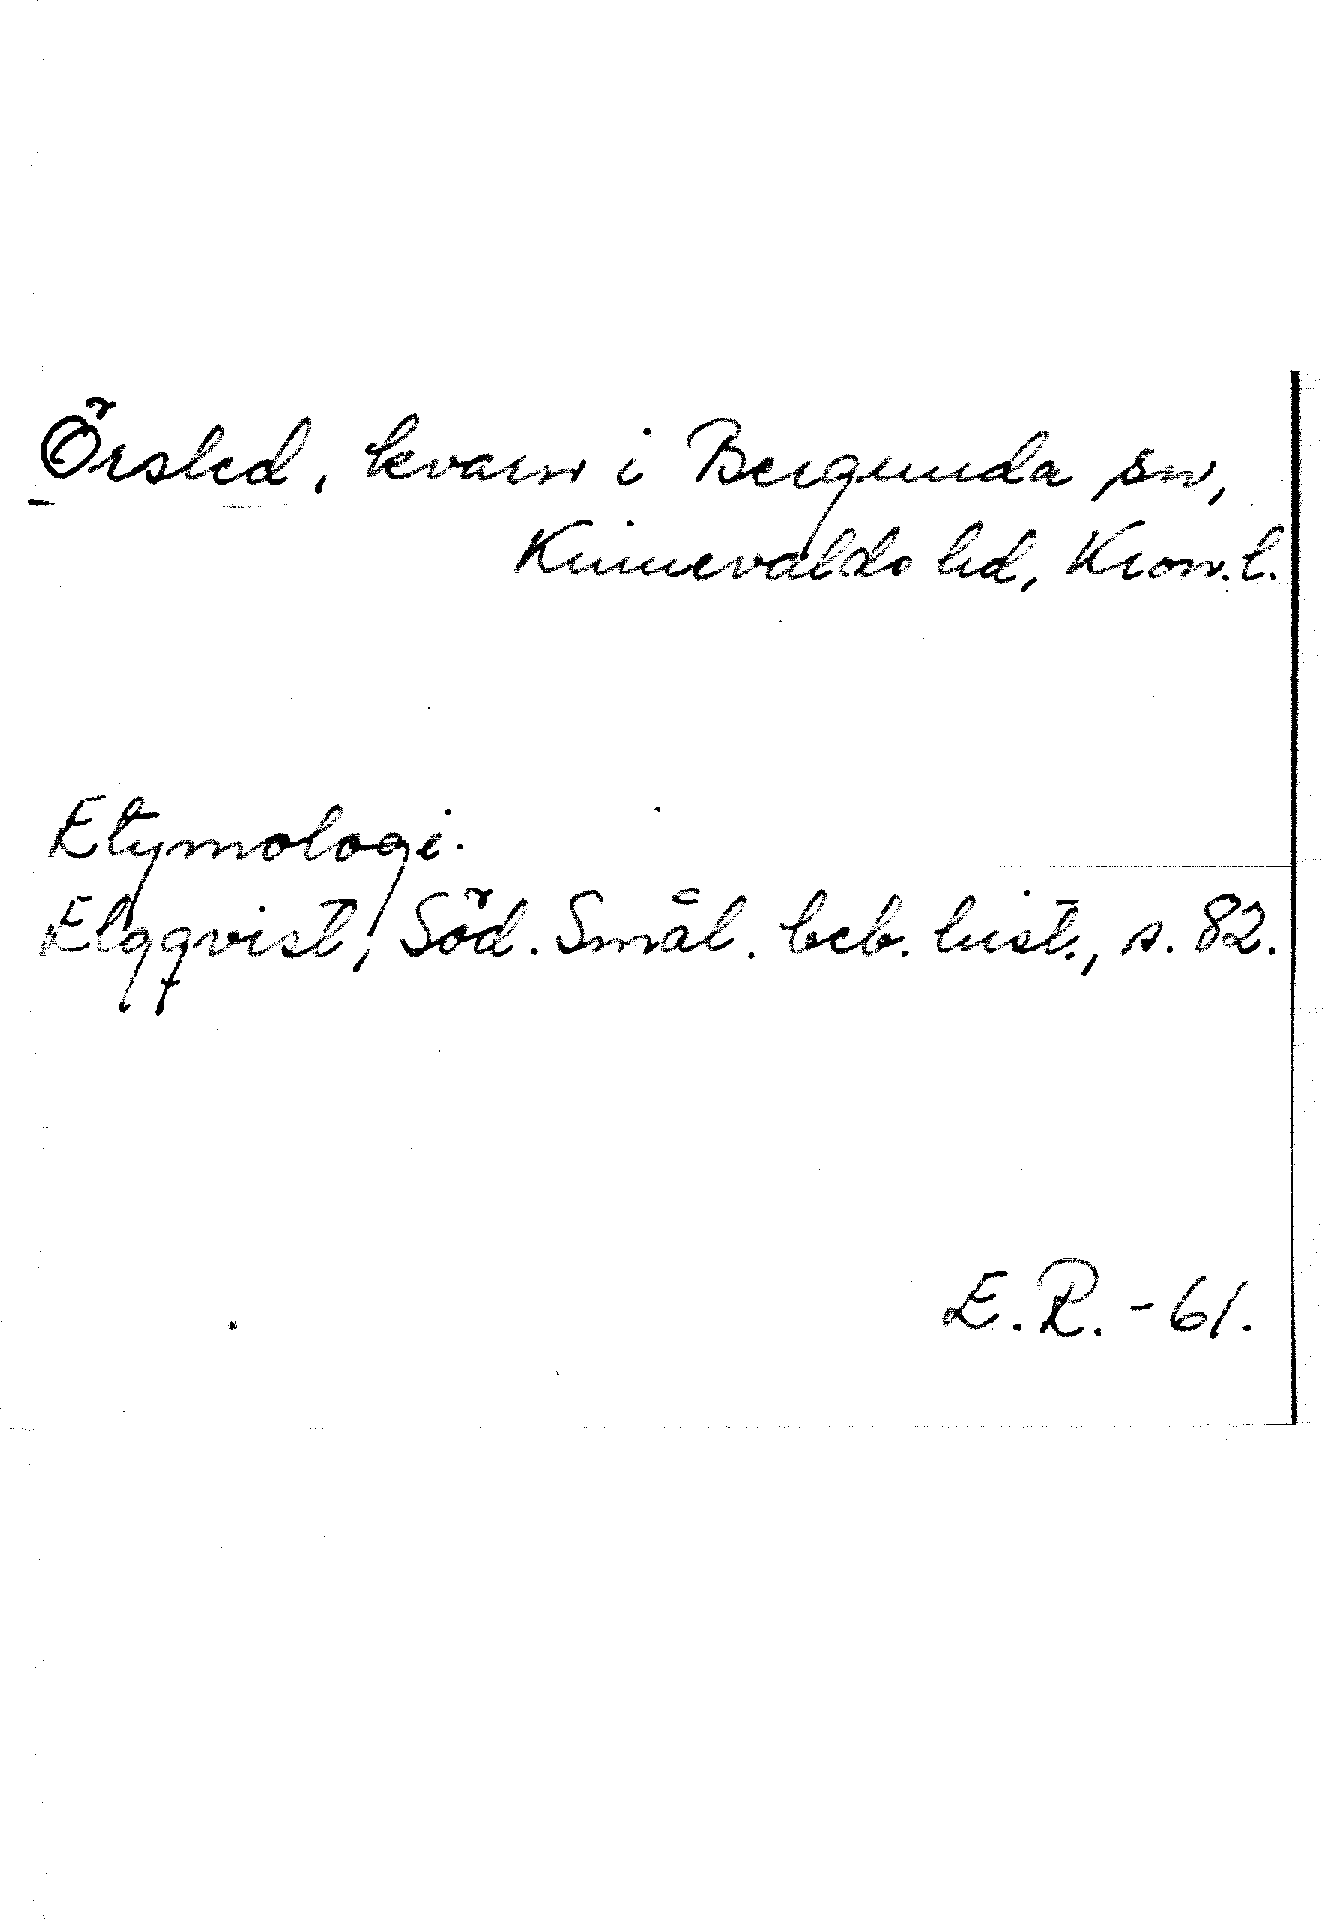 Örsled, kvarn i Bergunda sn,
Kinnevalds hd, Kron.l.
Etymologi.
Elgqvist, Söd. Smål. beb. hist., s. 82.
E.R.-61.